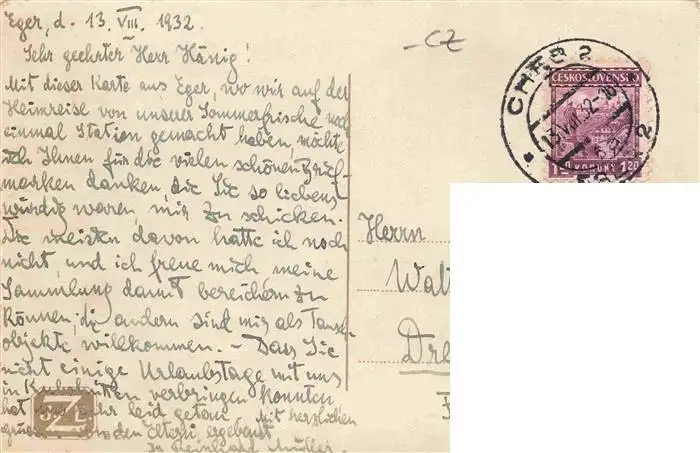 Eger, d. 13. VIII. 1932.
Sehr geehrter Herr Hänig!
Mit dieser Karte aus Eger, wo wir auf der
Heimreise von unserer Sommerfrische noch
einmal Station gemacht haben, möchte
ich Ihnen für die vielen schönen Brief-
marken danken die Sie so liebens
würdig waren, mir zu schicken.
Die meisten davon hatte ich noch
nicht, und ich freue mich meine
Sammlung damit bereichern zu
können; die andern sind mir als Tausch
objekte willkommen. – Dass Sie
nicht einige Urlaubstage mit uns
in verbringen konnten
hat sehr leid getan. Mit herzlichen
den Eltern ergebenst
Ihr Reinhard Müller.
-CZ
CHEB 2
ČESKOSLOVENSKO
13.VIII.32-16
KORUNY 1.20
Herrn
Walt
Dre
Z